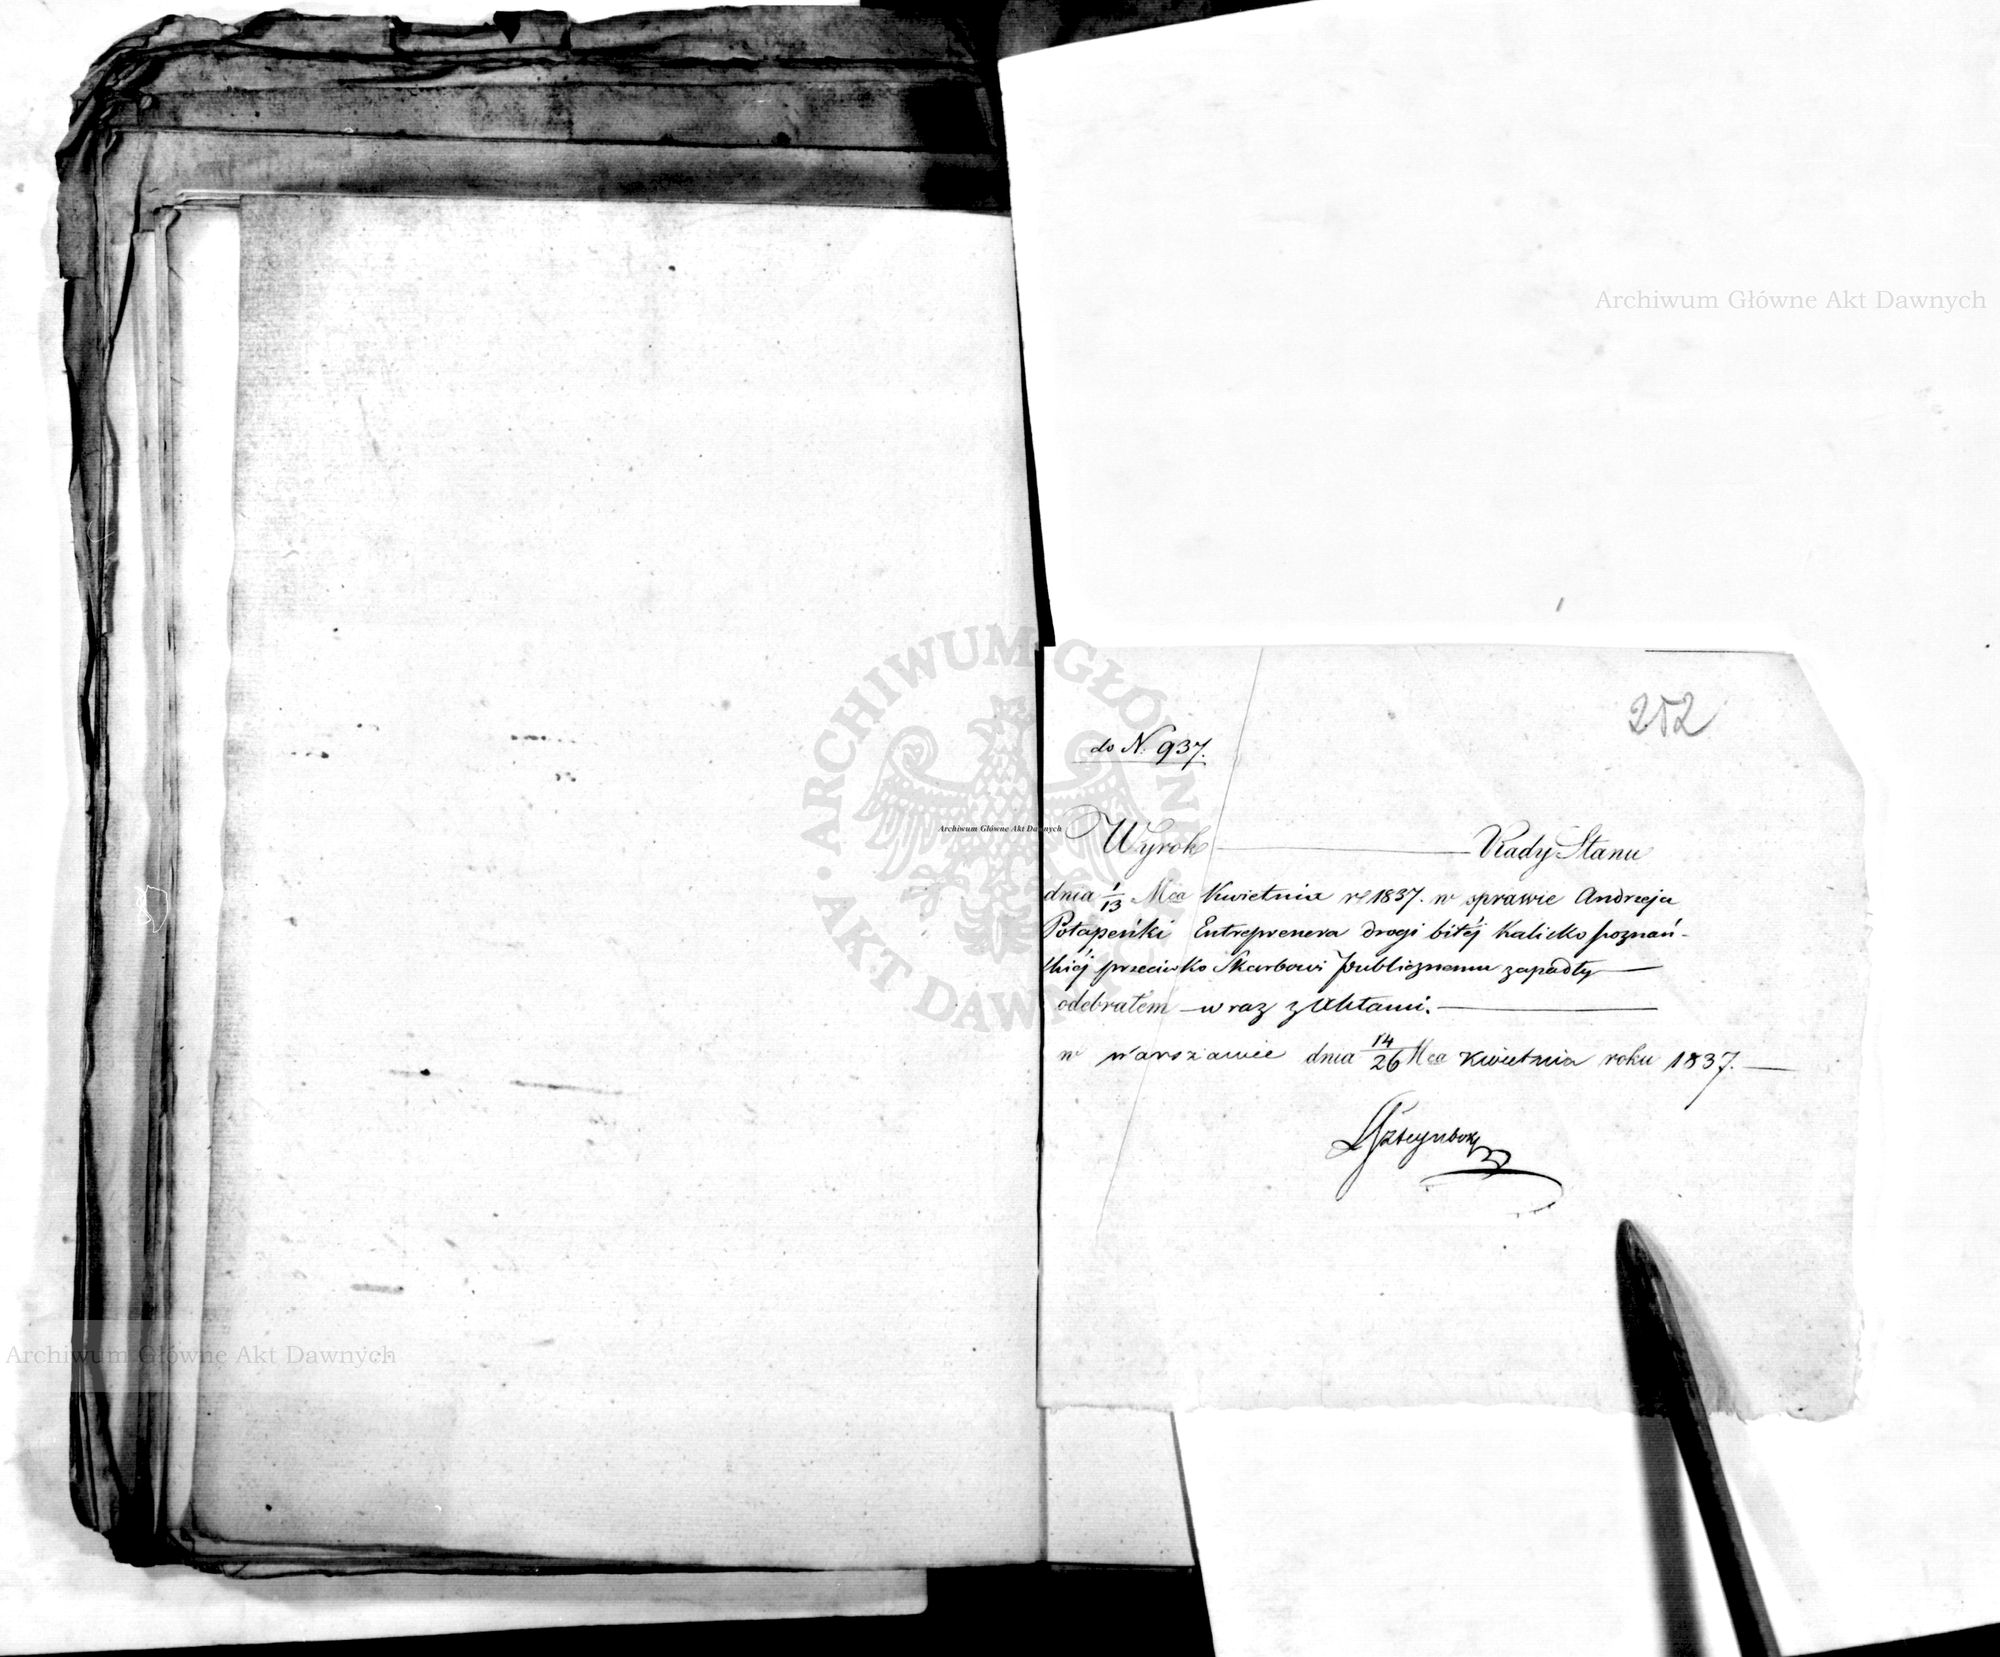 252
do N. 937.
Wyrok Rady Stanu
dnia 1/13 Mca Kwietnia r 1837. w sprawie Andrzeja
Potapeńki Entreprenera drogi bitéj Kalisko poznań-
skiéj przeciwko Skarbowi Publicznemu zapadły
odebrałem wraz z Aktami.
w Warszawie dnia 14/26 Mca Kwietnia roku 1837.
Archiwum Główne Akt Dawnych
Archiwum Główne Akt Dawnych
Archiwum Główne Akt Dawnych
ARCHIWUM GŁÓWNE AKT DAWNYCH